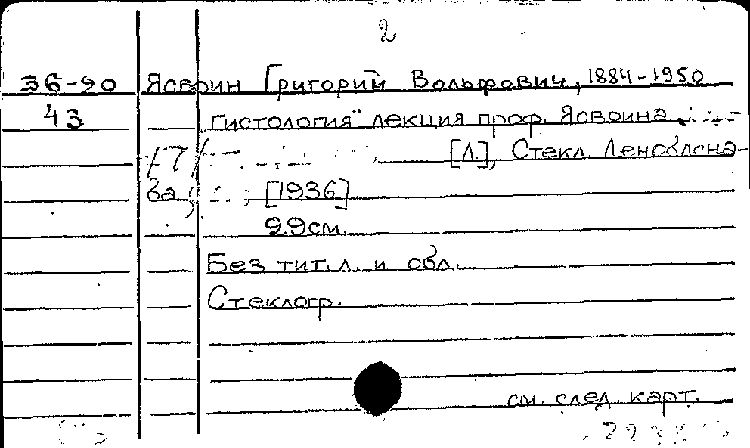 2
36-90 Ясвоин Григорий Вольфович, 1884-1950
43 Гистология" лекция проф. Ясвоина
[Л], Стекл. Леноблсна-
ба, [1936]
29см.
Без тит. л. и обл.
Стеклогр.
см. след. карт.